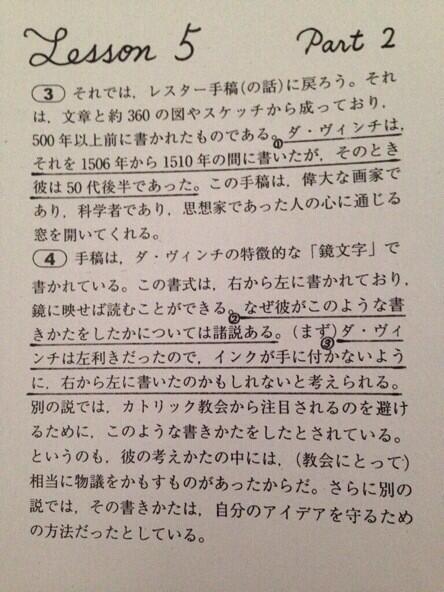 Lesson 5 Part 2
③ それでは，レスター手稿(の話)に戻ろう。それ
は，文章と約360の図やスケッチから成っており，
500年以上前に書かれたものである。①ダ・ヴィンチは，
それを1506年から1510年の間に書いたが，そのとき
彼は50代後半であった。この手稿は，偉大な画家で
あり，科学者であり，思想家であった人の心に通じる
窓を開いてくれる。
④ 手稿は，ダ・ヴィンチの特徴的な「鏡文字」で
書かれている。この書式は，右から左に書かれており，
鏡に映せば読むことができる。②なぜ彼がこのような書
きかたをしたかについては諸説ある。(まず)③ダ・ヴィ
ンチは左利きだったので，インクが手に付かないよう
に，右から左に書いたのかもしれないと考えられる。
別の説では，カトリック教会から注目されるのを避け
るために，このような書きかたをしたとされている。
というのも，彼の考えかたの中には，(教会にとって)
相当に物議をかもすものがあったからだ。さらに別の
説では，その書きかたは，自分のアイデアを守るため
の方法だったとしている。